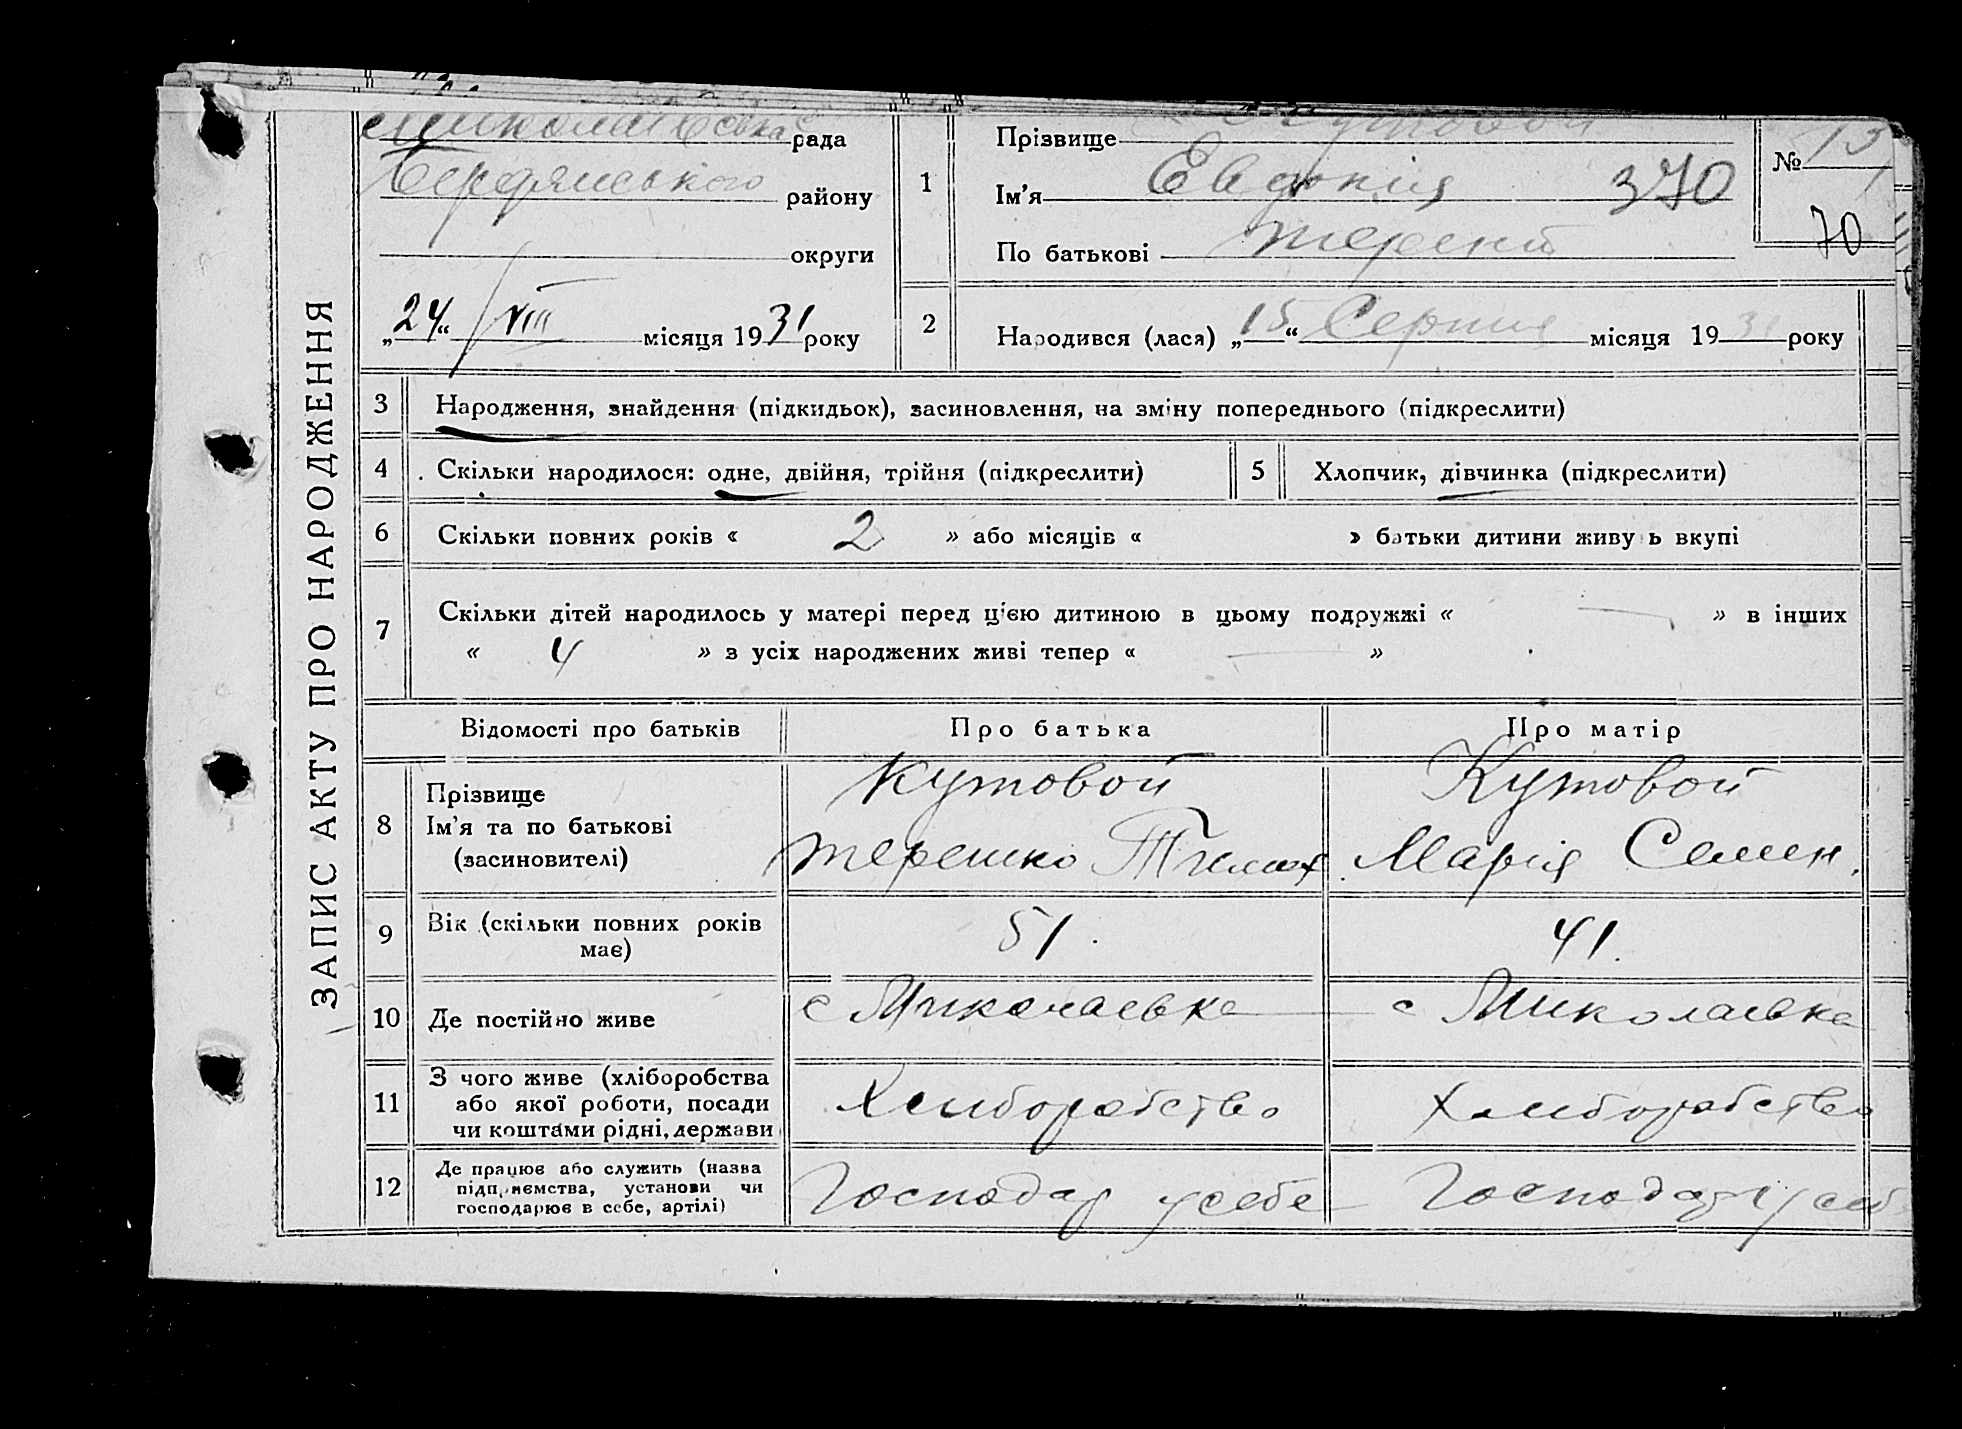 ЗАПИС АКТУ ПРО НАРОДЖЕННЯ
рада
Бердянського району
округи
„24“ VIII місяця 1931 року
1
Прізвище Кутовой
Ім'я Евдокия 370
По батькові Терент
№ 13
70
2
Народився (лася) „15“ Серпня місяця 1931 року
3 Народження, знайдення (підкидьок), засиновлення, на зміну попереднього (підкреслити)
4 Скільки народилося: одне, двійня, трійня (підкреслити)
5 Хлопчик, дівчинка (підкреслити)
6 Скільки повних років « 2 » або місяців « » батьки дитини живуть вкупі
7 Скільки дітей народилось у матері перед цією дитиною в цьому подружжі « — » в інших
« 4 » з усіх народжених живі тепер « — »
Відомості про батьків Про батька Про матір
8 Прізвище
Ім'я та по батькові
(засиновителі)
Кутовой
Терешко Тимох
Кутовой
Мария Семен.
9 Вік (скільки повних років
має)
51.
41.
10 Де постійно живе с Миколаевка с Миколаевка
11 З чого живе (хліборобства
або якої роботи, посади
чи коштами рідні, держави
Хлиборобство
Хлиборобство
12 Де працює або служить (назва
підприємства, установи чи
господарює в себе, артілі)
Господар у себе
Господар у себ